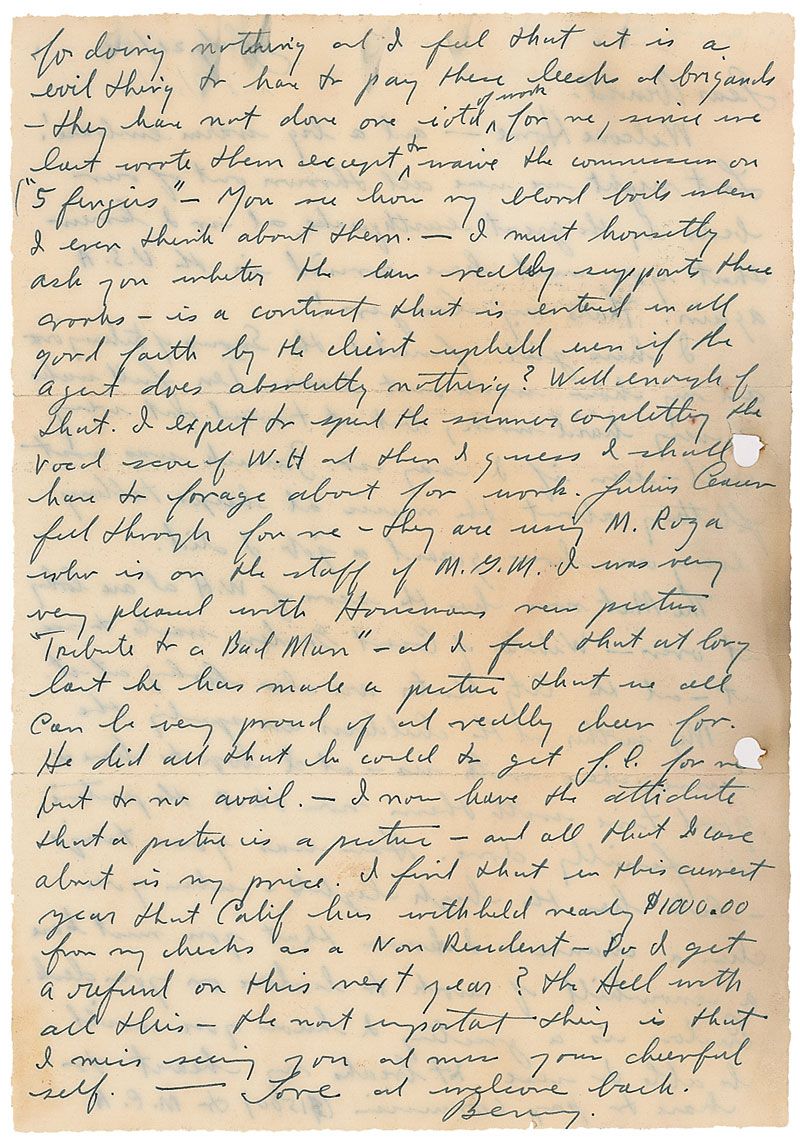 for doing nothing and I feel that it is a
evil thing to have to pay these leechs and brigands
– they have not done one iota of work for me, since we
last wrote them except to waive the commission on
("5 fingers" – You see how my blood boils when
I even think about them. – I must honsetly
ask you whether the law really supports these
crooks – is a contract that is entered in all
good faith by the client upheld even if the
agent does absolutley nothing? Well enough of
that. I expect to spend the summer completing the
vocal score of W.H and then I guess I shall
have to forage about for work. Julius Ceaser
fell through for me – they are using M. Roza
who is on the staff of M.G.M. I was very
very pleased with Housmans new picture
"Tribute to a Bad Man" – and I feel that at long
last he has made a picture that we all
can be very proud of and really cheer for.
He did all that he could to get J.C. for me
but to no avail. – I now have the attidute
that a picture is a picture – and all that I care
about is my price. I find that in this current
year that Calif has withheld nearly $1000.00
from my checks as a Non Resident – Do I get
a refund on this next year? The Hell with
all this – the most important thing is that
I miss seeing you and miss your cheerful
self. — Love and welcome back.
Benny.